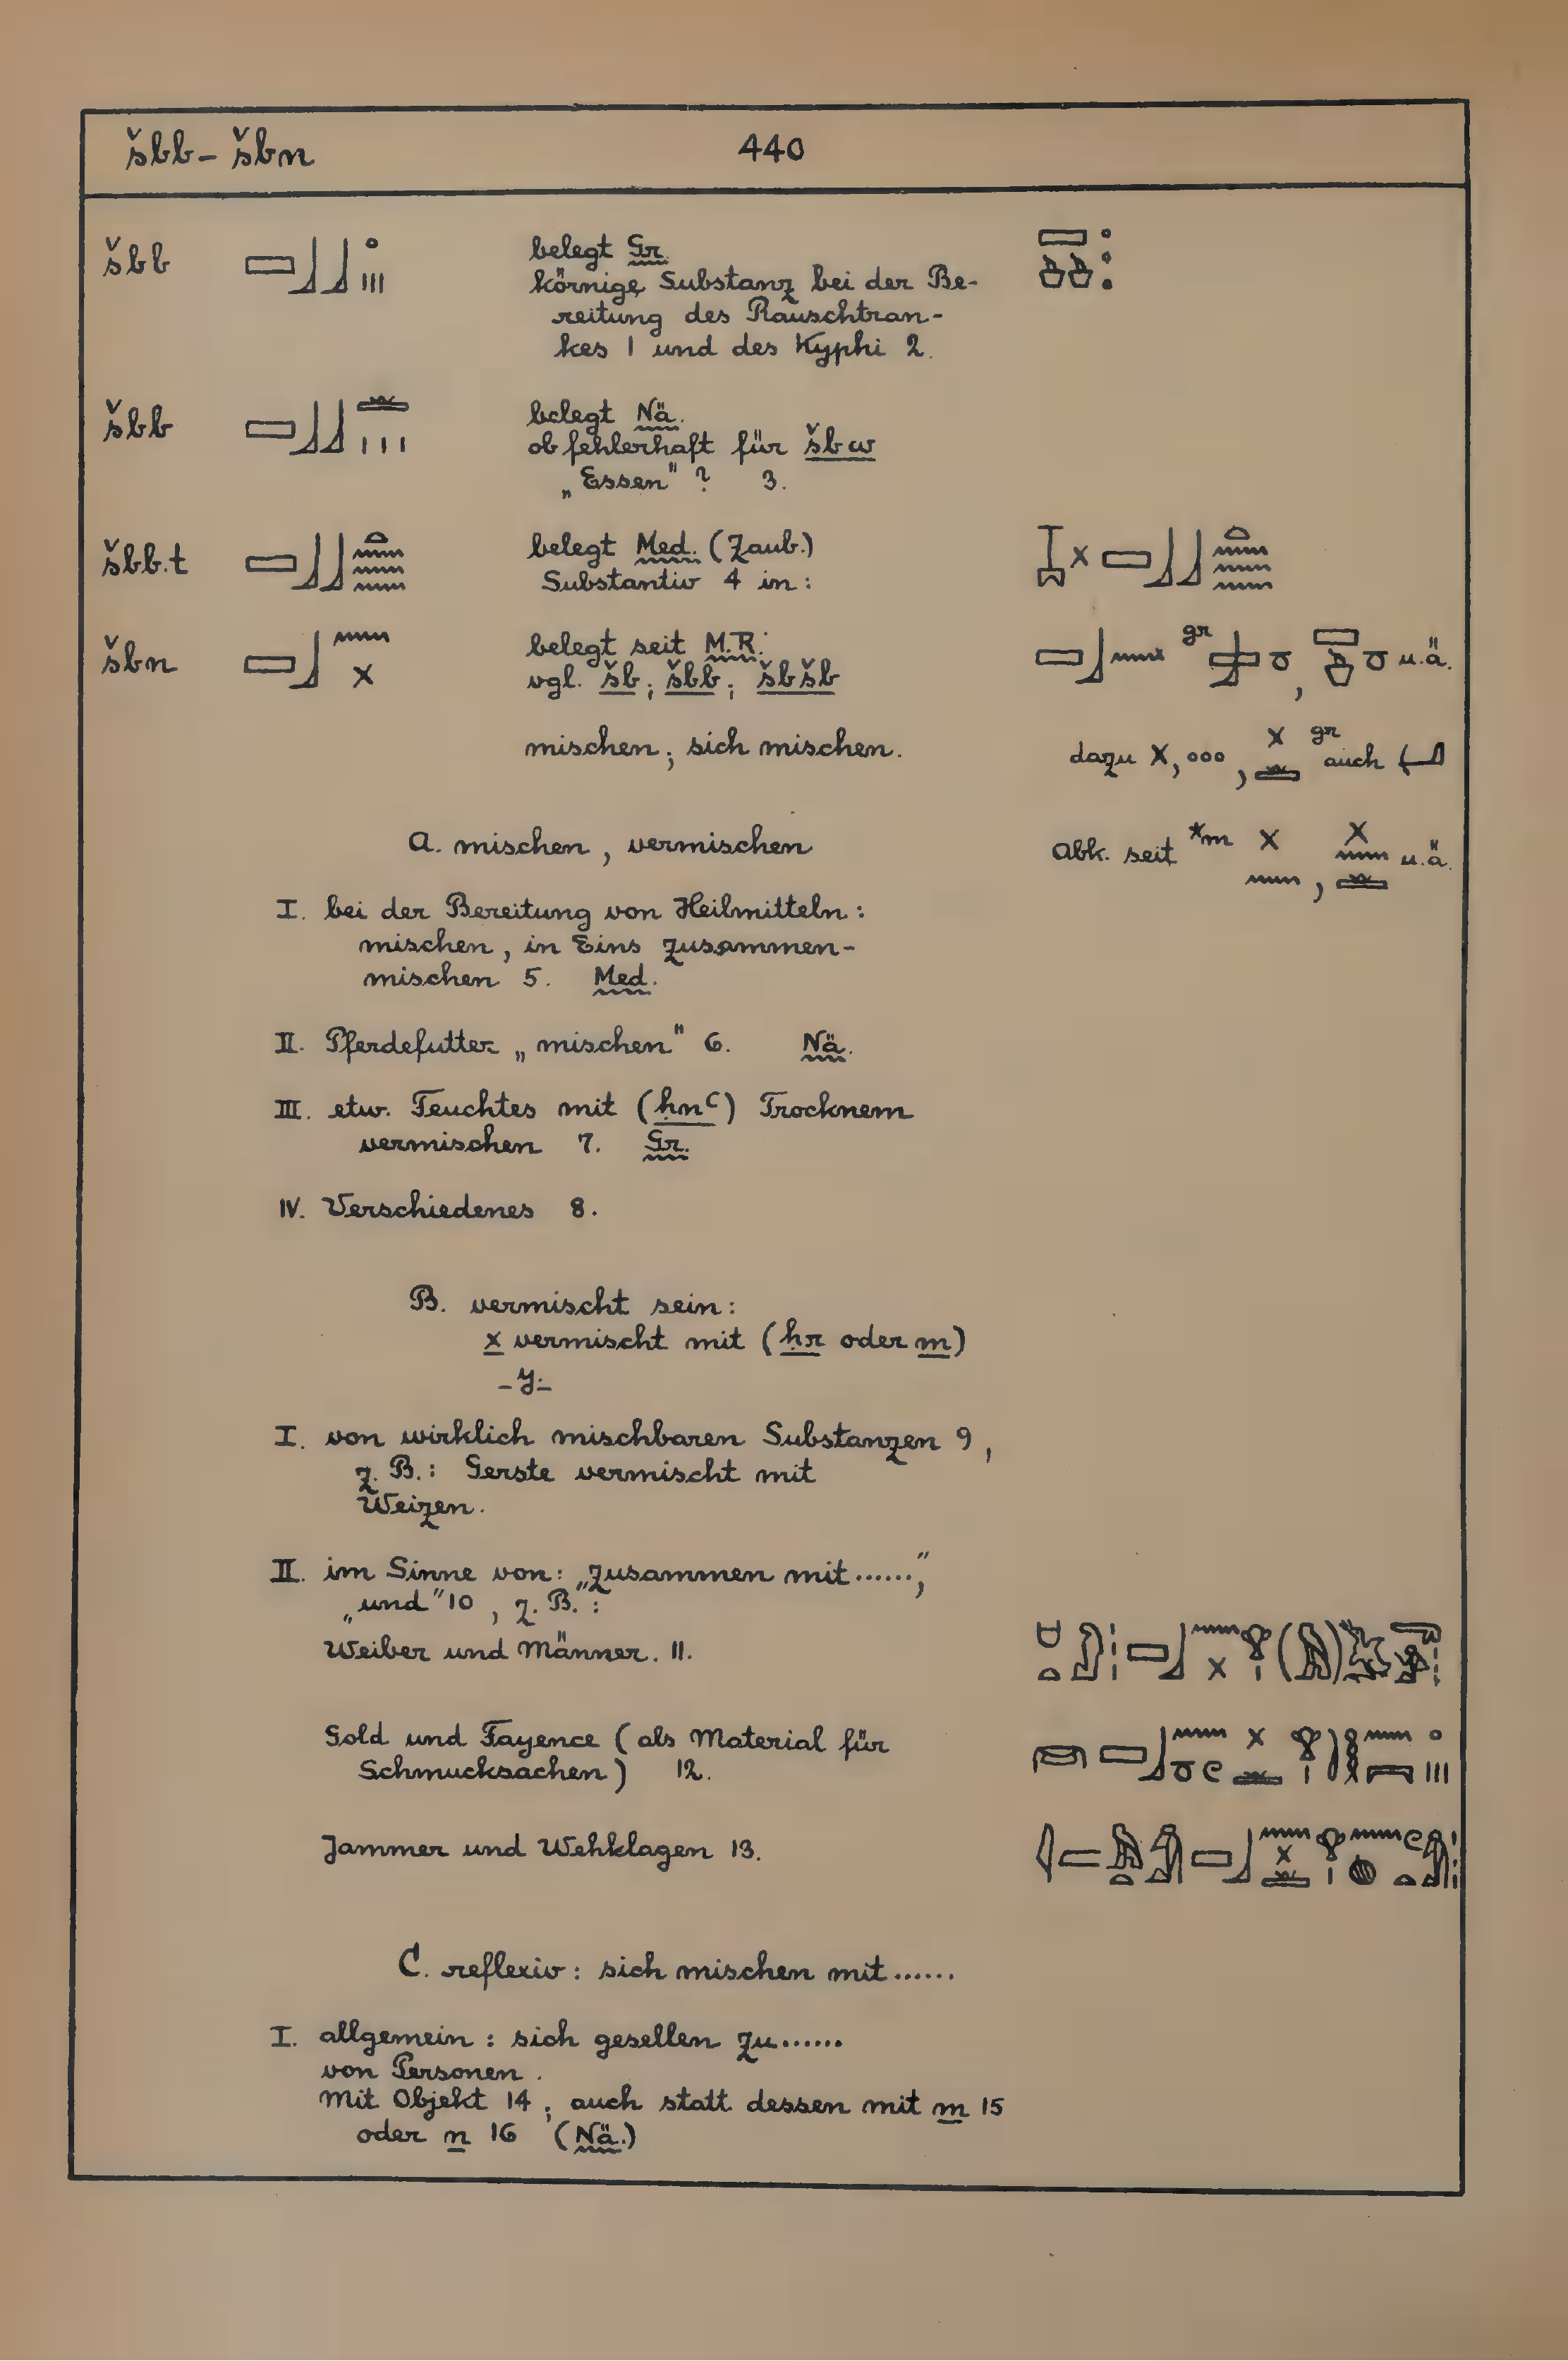 šbb – šbn 440
šbb belegt Gr.
körnige Substanz bei der Be-
reitung des Rauschtran-
kes 1 und des Kyphi 2.
šbb belegt Nä.
ob fehlerhaft für šbw
„Essen" ? 3.
šbb.t belegt Med. (Zaub.)
Substantiv 4 in:
šbn belegt seit M.R. gr , u.ä.
vgl. šb; šbb; šbšb
mischen; sich mischen. dazu X, ooo, gr auch
A. mischen, vermischen Abk. seit *m , u.ä.
I. bei der Bereitung von Heilmitteln:
mischen, in Eins zusammen-
mischen 5. Med.
II. Pferdefutter „mischen" 6. Nä.
III. etw. Feuchtes mit (ḥnꜥ) Trocknem
vermischen 7. Gr.
IV. Verschiedenes 8.
B. vermischt sein:
x vermischt mit (ḥr oder m)
– y. –
I. von wirklich mischbaren Substanzen 9,
z. B.: Gerste vermischt mit
Weizen.
II. im Sinne von: „zusammen mit......",
„und" 10, z. B.:
Weiber und Männer. 11.
Gold und Fayence (als Material für
Schmucksachen) 12.
Jammer und Wehklagen 13.
C. reflexiv: sich mischen mit......
I. allgemein: sich gesellen zu......
von Personen.
Mit Objekt 14; auch statt dessen mit m 15
oder n 16 (Nä.)